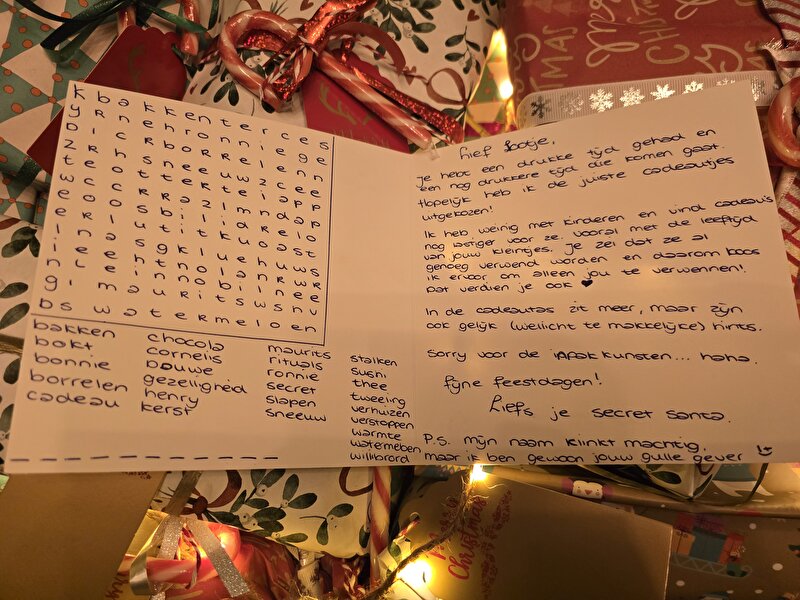 k b a k k e n t e r c e s
y r n e h r o n n i e g e
o i c r b o r r e l e n n
z r h s n e e u w z c e e
t e o t t e k t e i a p p
w c c r r a z i m n d a p
e o o s b i l i d r e l o
e r l u t i t k u o a s t
l n a s g k l u e h u w s
i e e h t n o l a n r w r
n l e i n n o b i l n e e
g i m a u r i t s w s n v
b s w a t e r m e l o e n
bakken chocola maurits stalken
bokt cornelis rituals sushi
bonnie douwe ronnie thee
borrelen gezelligheid secret tweeling
cadeau henry slapen verhuizen
kerst sneeuw verstoppen
warmte
watermeloen
willibrord
Lief Lootje,
Je hebt een drukke tijd gehad en
een nog drukkere tijd die komen gaat.
Hopelijk heb ik de juiste cadeautjes
uitgekozen!
Ik heb weinig met kinderen en vind cadeau's
nog lastiger voor ze. Vooral met de leeftijd
van jouw kleintjes. Je zei dat ze al
genoeg verwend worden en daarom koos
ik ervoor om alleen jou te verwennen!
Dat verdien je ook ♥
In de cadeautas zit meer, maar zijn
ook gelijk (wellicht te makkelijke) hints.
Sorry voor de inpakkunsten... haha.
Fijne feestdagen!
Liefs je secret santa.
P.S. mijn naam klinkt machtig,
maar ik ben gewoon jouw gulle gever
MERRY
CHRISTMAS
Christmas